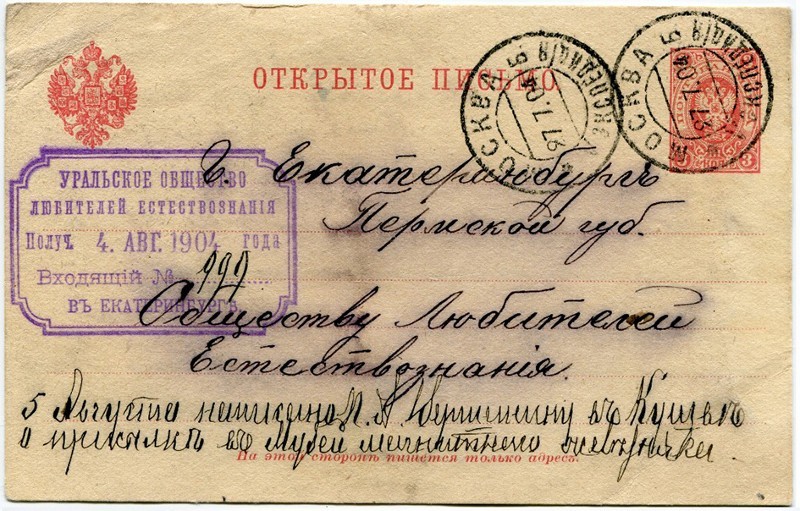 ОТКРЫТОЕ ПИСЬМО
МОСКВА Б ЭКСПЕДИЦІЯ
27.7.04
МОСКВА Б ЭКСПЕДИЦІЯ
27.7.04
УРАЛЬСКОЕ ОБЩЕСТВО
ЛЮБИТЕЛЕЙ ЕСТЕСТВОЗНАНІЯ
Получ. 4. АВГ. 1904 года
Входящій № 999
ВЪ ЕКАТЕРИНБУРГѢ
Г. Екатеринбургъ
Пермской губ.
Обществу Любителей
Естествознанія.
5 Августа написано въ
о въ Музей магнитнаго
На этой сторонѣ пишется только адресъ.